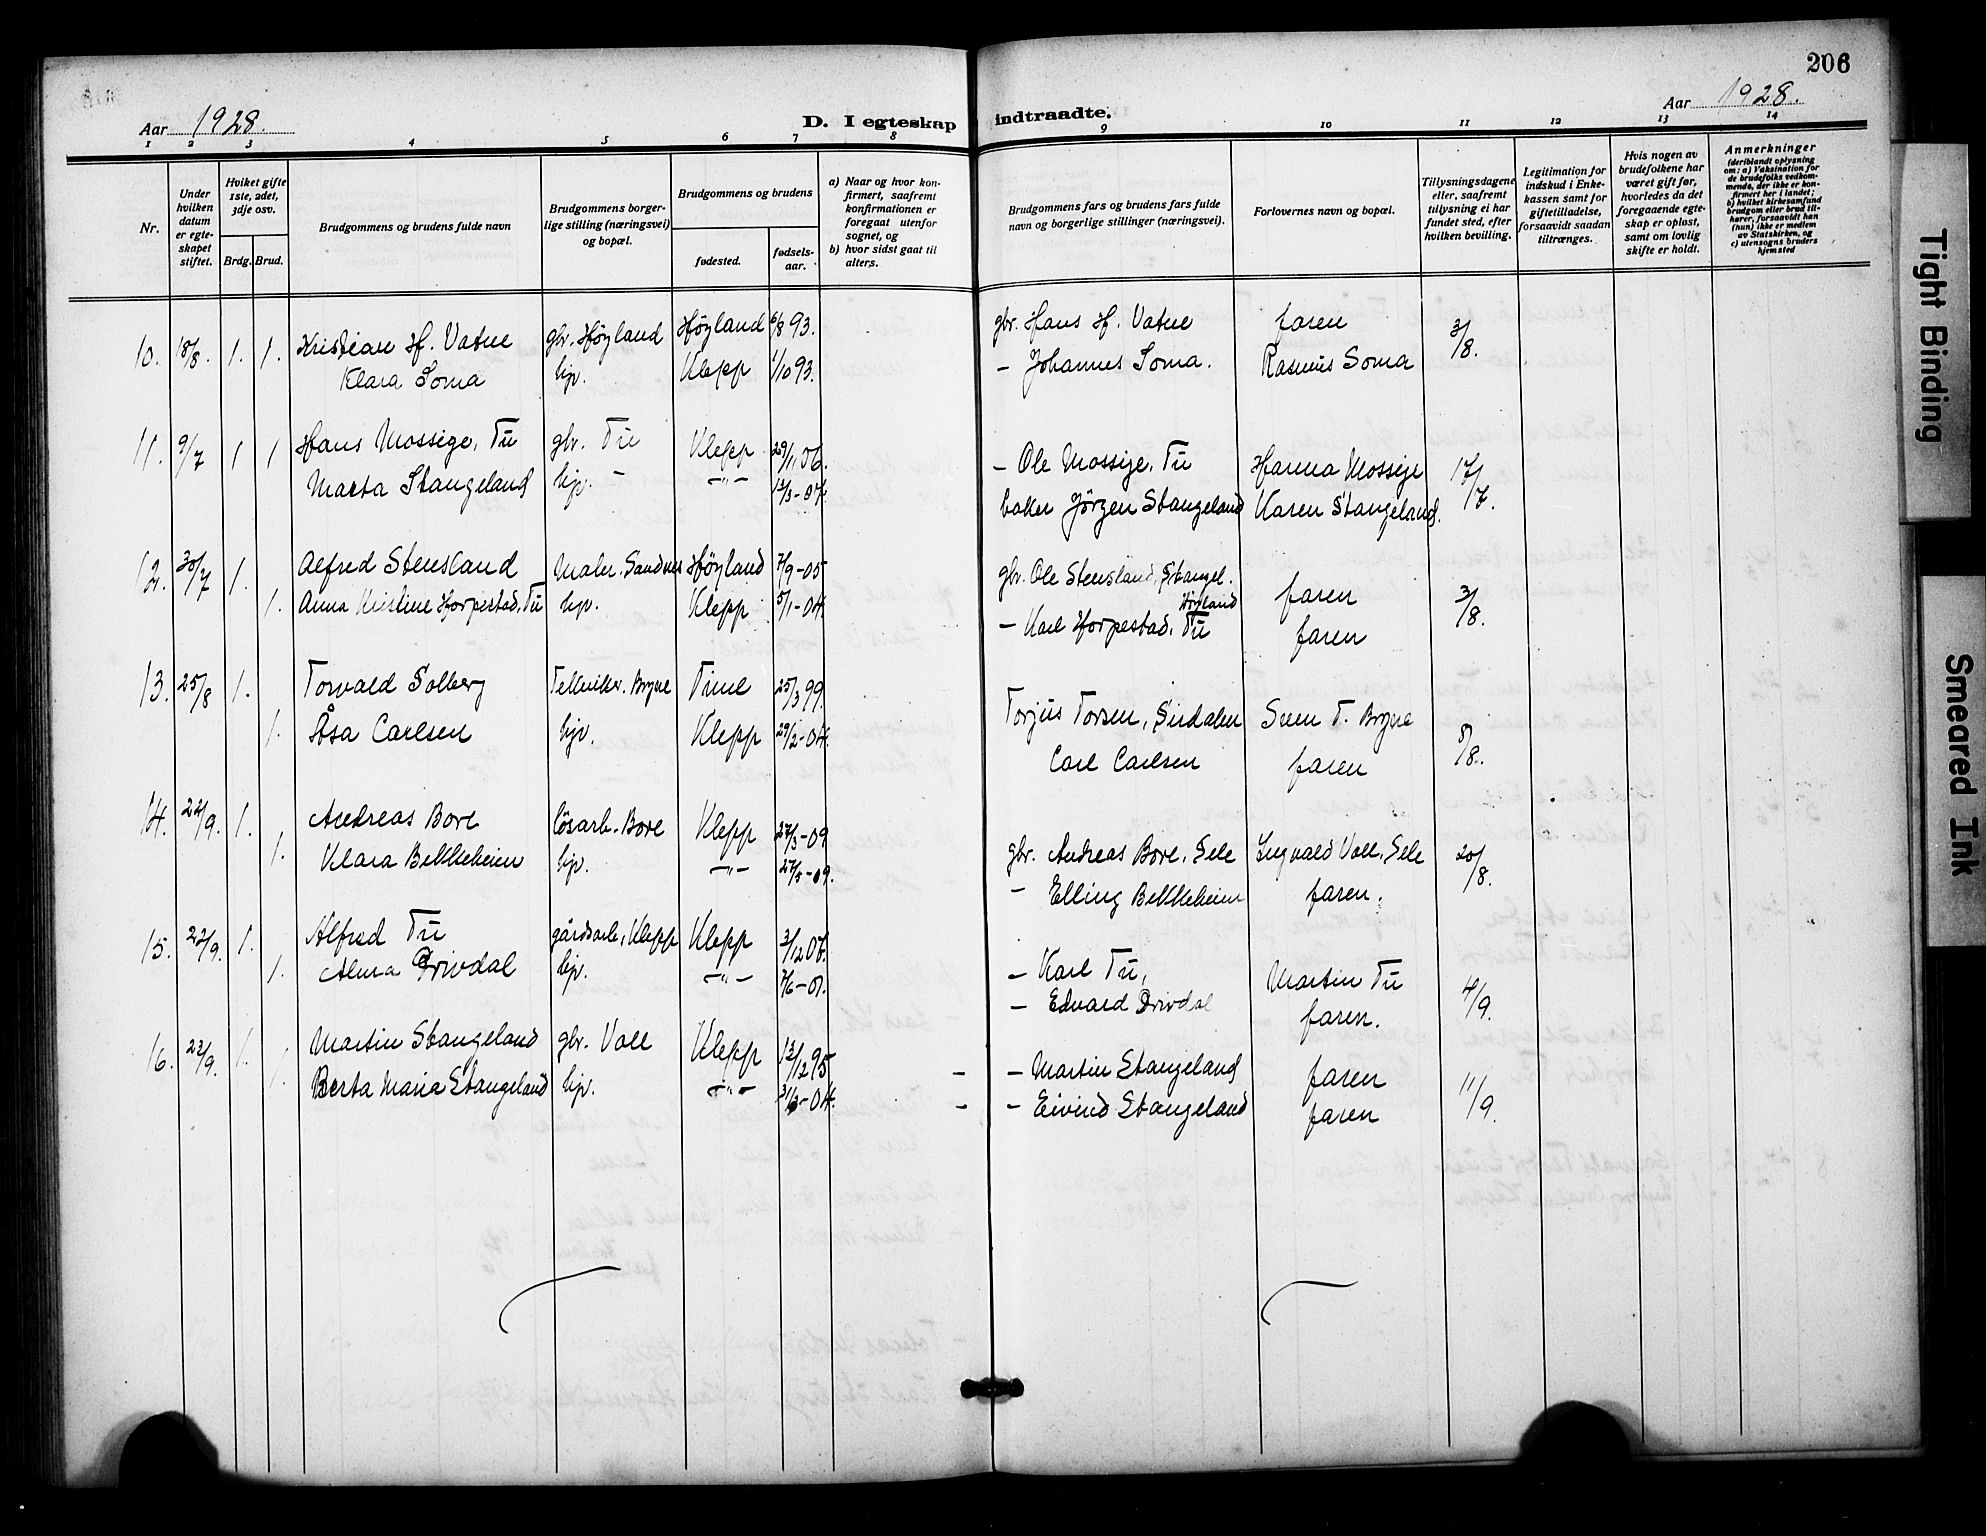 206
Aar 1928.
D. I egteskap indtraadte.
Aar 1928.
1 2 3 4 5 6 7 8 9 10 11 12 13 14
Nr.
Under hvilken datum er egteskapet stiftet.
Hviket gifte 1ste, 2det, 3dje osv.
Brdg. Brud.
Brudgommens og brudens fulde navn
Brudgommens borgerlige stilling (næringsvei) og bopæl.
Brudgommens og brudens
fødested.
fødselsaar.
a) Naar og hvor konfirmert, saafremt konfirmationen er foregaat utenfor sognet, og
b) hvor sidst gaat til alters.
Brudgommens fars og brudens fars fulde navn og borgerlige stillinger (næringsvei).
Forlovernes navn og bopæl.
Tillysningsdagene eller, saafremt tillysning ei har fundet sted, efter hvilken bevilling.
Legitimation for indskud i Enkekassen samt for giftetilladelse, forsaavidt saadan tiltrænges.
Hvis nogen av brudefolkene har været gift før, hvorledes da det foregaaende egteskap er opløst, samt om lovlig skifte er holdt.
Anmerkninger
(deriblandt oplysning om: a) Vaksination for de brudefolks vedkommende, der ikke er konfirmert her i landet; b) hvilket kirkesamfund brudgom eller brud tilhører, forsaavidt han (hun) ikke er medlem av Statskirken, og c) utensogns bruders hjemsted
10. 18/8. 1. 1. Kristian H. Vatne gbr. Høyland Høyland 6/8 93. gbr. Hans H. Vatne faren 3/8.
Klara Soma hjv. Klepp 1/10 93. - Johannes Soma. Rasmus Soma
11. 9/7 1 1 Hans Mossige, Tu gbr. Tu Klepp 29/1 06. - Ole Mossige, Tu Hanna Mossige 17/7.
Marta Stangeland hjv. - -"- 13/3-07. baker Jörgen Stangeland Karen Stangeland.
12. 30/7 1. Alfred Stensland Maler. Sandnes Höyland 7/9-05 gbr. Ole Stensland, Stangel. Höyland faren 3/8.
1. Anna Kristine Horpestad, Tu hjv. Klepp 5/1-04. - Karl Horpestad, Tu faren
13. 25/8 1. Torvald Solberg Tekniker. Bryne Time 25/3 99. Torjus Torsen, Sirdalen Sven T. Bryne 8/8.
1. Åsa Carlsen hjv. Klepp 29/2-04. Carl Carlsen faren
14. 22/9. 1. Andreas Bore lösarb. Bore Klepp 27/3-09 gbr. Andreas Bore, Sele Ingvald Voll, Sele 20/8.
1. Klara Bekkeheien hjv. -"- 27/5-09. - Elling Bekkeheien faren.
15. 22/9. 1. Alfred Tu gårdsarb, Klepp Klepp 3/12 06. - Karl Tu, Martin Tu 4/9.
1. Alma Drivdal hjv. -"- 7/6-07. - Edvard Drivdal faren.
16. 23/9. 1. Martin Stangeland gbr. Voll Klepp 13/12 95 - - Martin Stangeland faren 11/9.
1. Berta Maria Stangeland hjv. -"- 31/3-04. - - Eivind Stangeland faren
Tight Binding
Smeared Ink